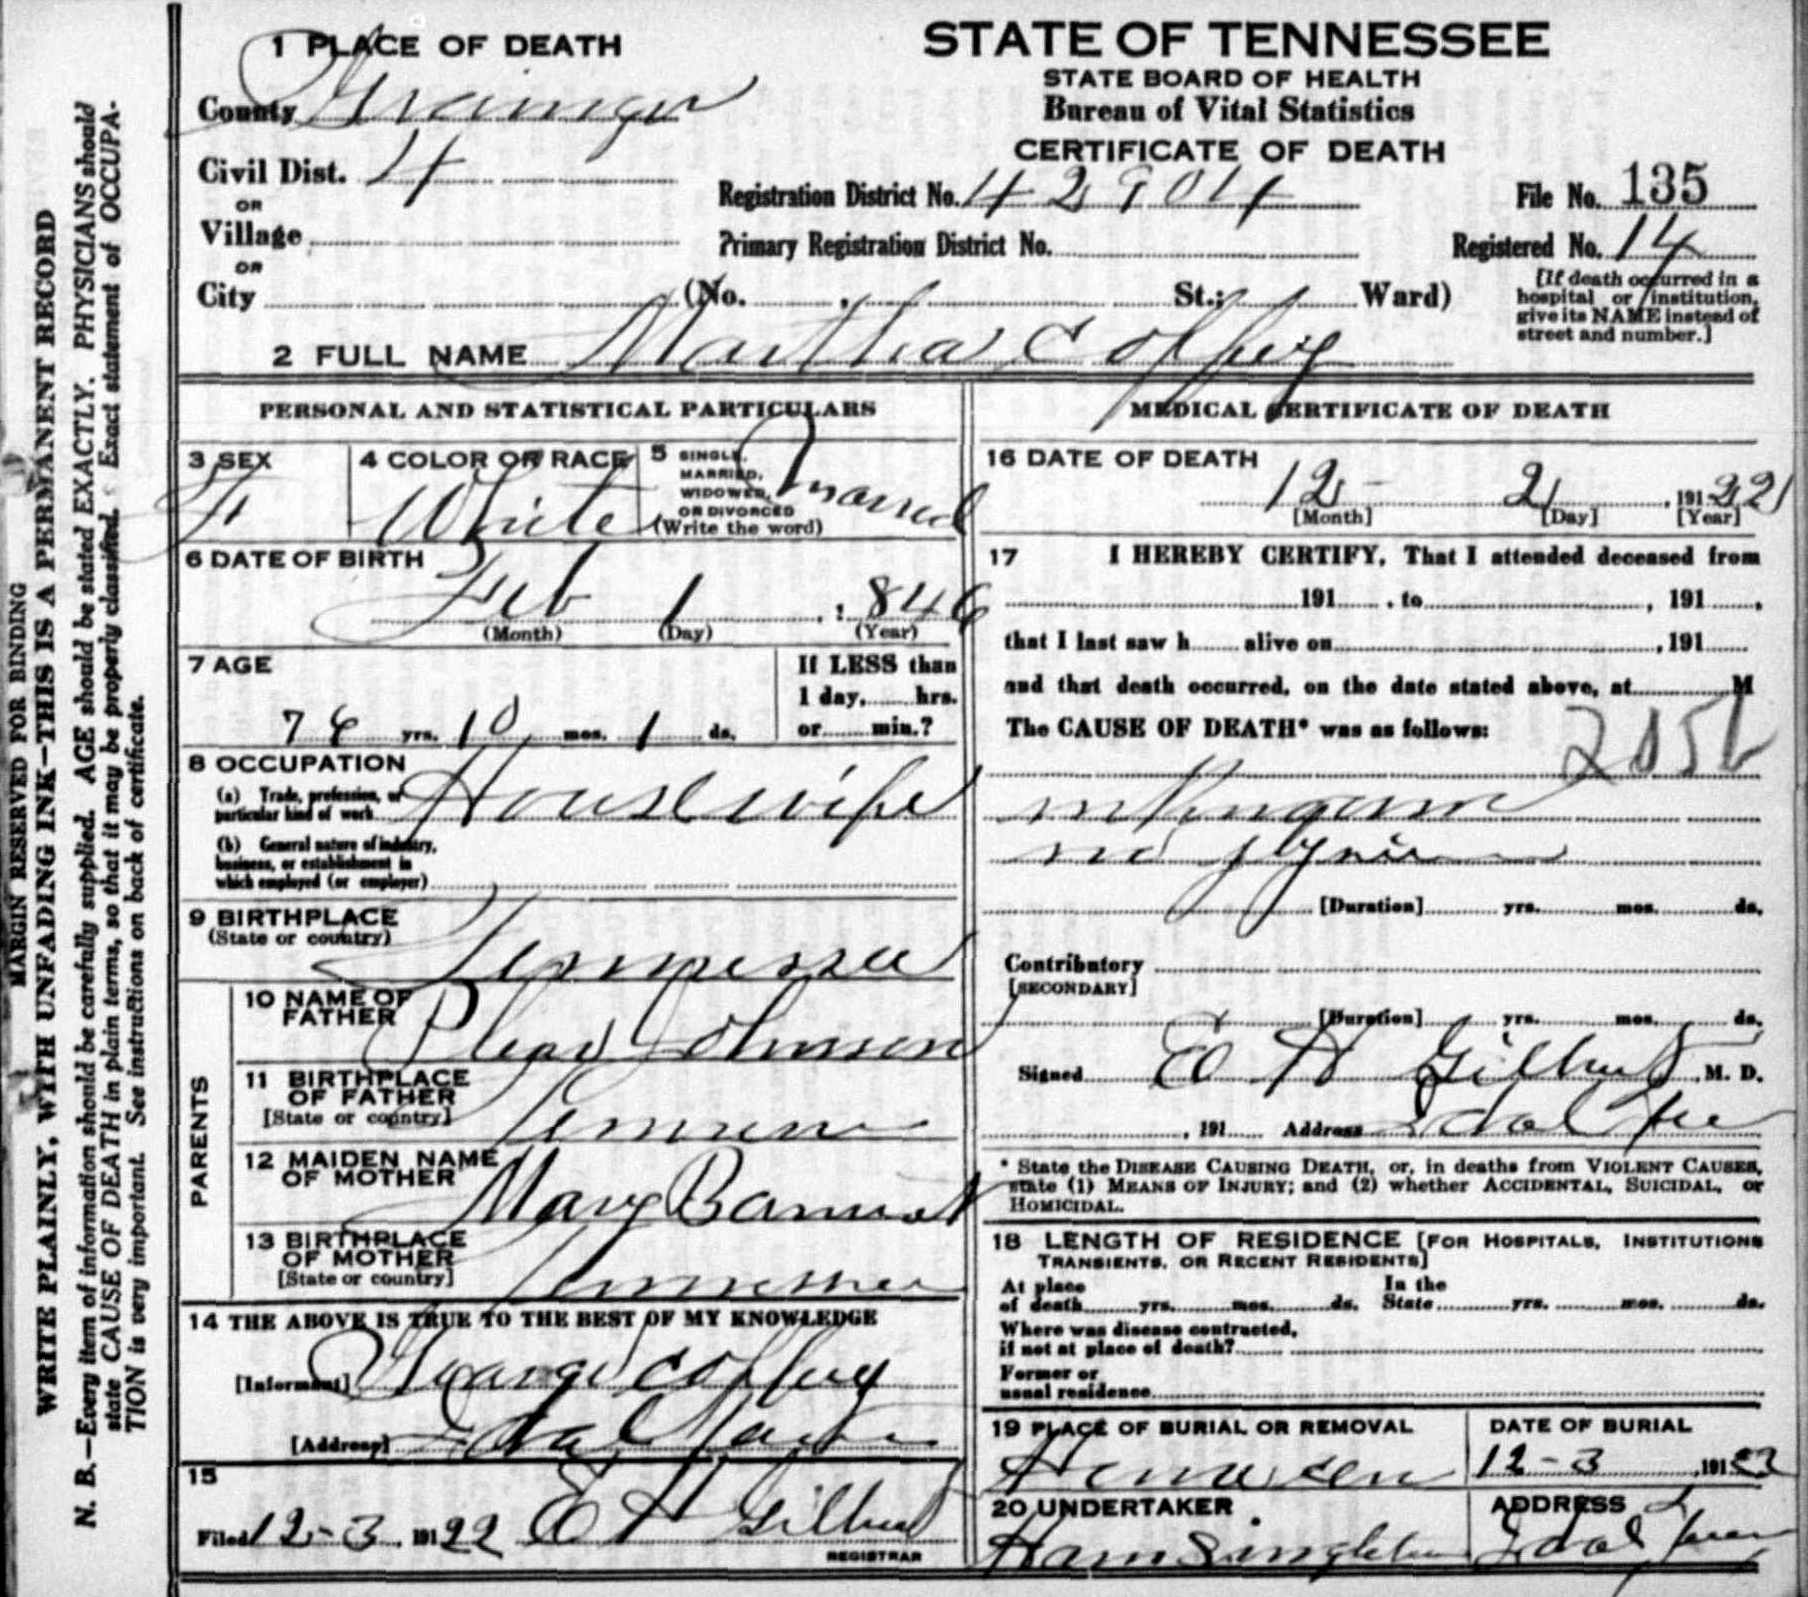 MARGIN RESERVED FOR BINDING
WRITE PLAINLY, WITH UNFADING INK—THIS IS A PERMANENT RECORD
N. B.—Every item of information should be carefully supplied. AGE should be stated EXACTLY. PHYSICIANS should
state CAUSE OF DEATH in plain terms, so that it may be properly classified. Exact statement of OCCUPA-
TION is very important. See instructions on back of certificate.
1 PLACE OF DEATH
County Grainger
Civil Dist. 4
OR
Village
OR
City (No. , St.; Ward)
STATE OF TENNESSEE
STATE BOARD OF HEALTH
Bureau of Vital Statistics
CERTIFICATE OF DEATH
Registration District No. 42904
File No. 135
Primary Registration District No.
Registered No. 14
[If death occurred in a
hospital or institution,
give its NAME instead of
street and number.]
2 FULL NAME Martha Coffey
PERSONAL AND STATISTICAL PARTICULARS
3 SEX
F
4 COLOR OR RACE
White
5 SINGLE,
MARRIED,
WIDOWED,
OR DIVORCED
(Write the word)
Married
6 DATE OF BIRTH
Feb 1 , 1846
(Month) (Day) (Year)
7 AGE
76 yrs. 10 mos. 1 ds.
If LESS than
1 day, hrs.
or min.?
8 OCCUPATION
(a) Trade, profession, or
particular kind of work Housewife
(b) General nature of industry,
business, or establishment in
which employed (or employer)
9 BIRTHPLACE
(State or country)
Tennessee
PARENTS
10 NAME OF
FATHER
Johnson
11 BIRTHPLACE
OF FATHER
[State or country]
12 MAIDEN NAME
OF MOTHER
Mary
13 BIRTHPLACE
OF MOTHER
[State or country]
Tennessee
14 THE ABOVE IS TRUE TO THE BEST OF MY KNOWLEDGE
[Informant] George Coffey
[Address] Idol
15
Filed 12-3 1922 E H Gilbert
REGISTRAR
MEDICAL CERTIFICATE OF DEATH
16 DATE OF DEATH
12 - 2 , 1922
[Month] [Day] [Year]
17 I HEREBY CERTIFY, That I attended deceased from
191 , to , 191 ,
that I last saw h alive on , 191
and that death occurred, on the date stated above, at M
The CAUSE OF DEATH* was as follows:
205b
no
[Duration] yrs. mos. ds.
Contributory
[SECONDARY]
[Duration] yrs. mos. ds.
Signed E H Gilbert M. D.
, 191 Address Idol
* State the DISEASE CAUSING DEATH, or, in deaths from VIOLENT CAUSES,
state (1) MEANS OF INJURY; and (2) whether ACCIDENTAL, SUICIDAL, or
HOMICIDAL.
18 LENGTH OF RESIDENCE [FOR HOSPITALS, INSTITUTIONS
TRANSIENTS, OR RECENT RESIDENTS]
At place
of death yrs. mos. ds.
In the
State yrs. mos. ds.
Where was disease contracted,
if not at place of death?
Former or
usual residence
19 PLACE OF BURIAL OR REMOVAL
DATE OF BURIAL
12-3 , 1922
20 UNDERTAKER
Ham Singleton
ADDRESS
Idol